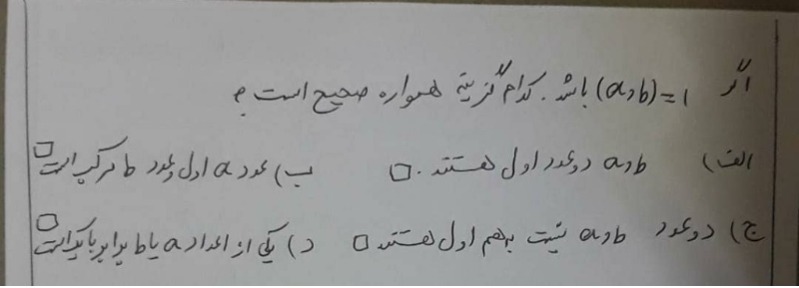 اگر (a,b)=1 باشد. کدام گزینه همواره صحیح است؟
الف) a و b دو عدد اول هستند. □ ب) عدد a اول و عدد b مرکب است □
ج) دو عدد a و b نسبت به هم اول هستند □ د) یکی از اعداد a یا b برابر با یک است □